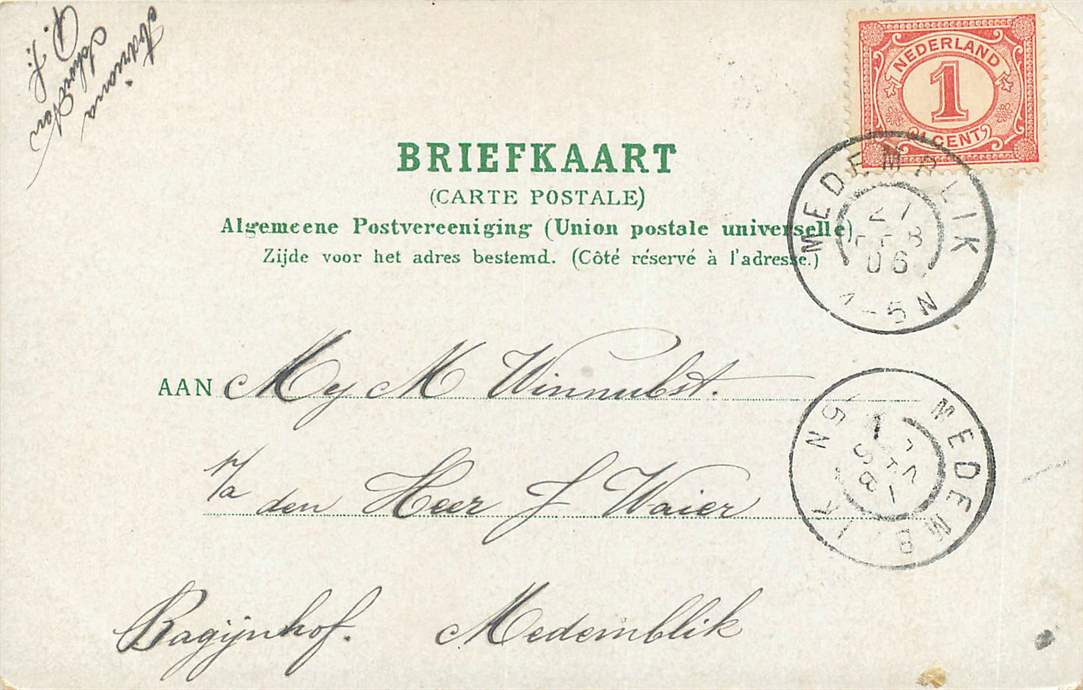 Adriana
NEDERLAND
1
CENT
BRIEFKAART
(CARTE POSTALE)
Algemeene Postvereeniging (Union postale universelle)
Zijde voor het adres bestemd. (Côté réservé à l'adresse.)
MEDEMBLIK
06
4-5N
AAN Mej M Winnubst.
p/a den Heer J Waier
Bagijnhof. Medemblik
MEDEMBLIK